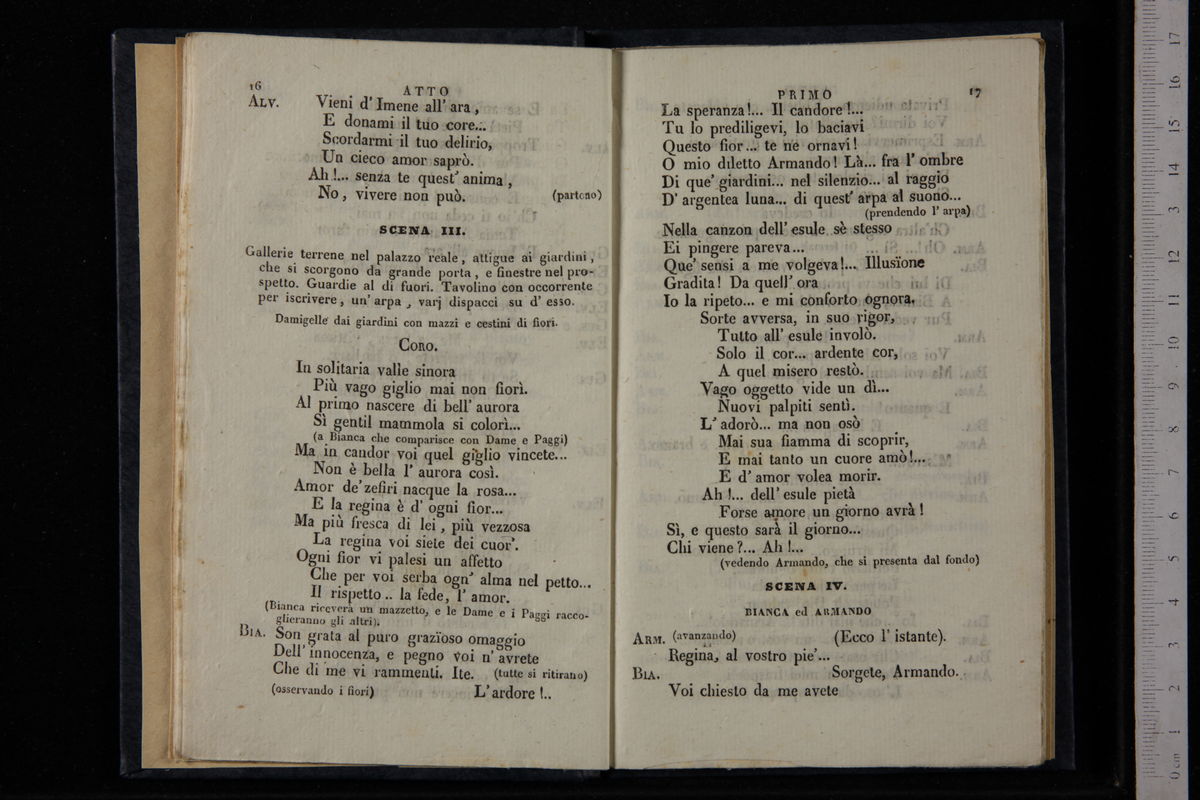 16
ATTO
ALV. Vieni d' Imene all' ara,
E donami il tuo core...
Scordarmi il tuo delirio,
Un cieco amor saprò.
Ah!... senza te quest' anima,
No, vivere non può. (partono)
SCENA III.
Gallerie terrene nel palazzo reale, attigue ai giardini,
che si scorgono da grande porta, e finestre nel pro-
spetto. Guardie al di fuori. Tavolino con occorrente
per iscrivere, un' arpa, varj dispacci su d' esso.
Damigelle dai giardini con mazzi e cestini di fiori.
CORO.
In solitaria valle sinora
Più vago giglio mai non fiorì.
Al primo nascere di bell' aurora
Sì gentil mammola si colorì...
(a Bianca che comparisce con Dame e Paggi)
Ma in candor voi quel giglio vincete...
Non è bella l' aurora così.
Amor de' zefiri nacque la rosa...
E la regina è d' ogni fior...
Ma più fresca di lei, più vezzosa
La regina voi siete dei cuor'.
Ogni fior vi palesi un affetto
Che per voi serba ogn' alma nel petto...
Il rispetto.. la fede, l' amor.
(Bianca riceverà un mazzetto, e le Dame e i Paggi racco-
glieranno gli altri).
BIA. Son grata al puro grazïoso omaggio
Dell' innocenza, e pegno voi n' avrete
Che di me vi rammenti. Ite. (tutte si ritirano)
(osservando i fiori) L' ardore!..
PRIMO
17
La speranza!... Il candore!...
Tu lo prediligevi, lo baciavi
Questo fior... te ne ornavi!
O mio diletto Armando! Là... fra l' ombre
Di que' giardini... nel silenzio... al raggio
D' argentea luna... di quest' arpa al suono...
(prendendo l' arpa)
Nella canzon dell' esule sè stesso
Ei pingere pareva...
Que' sensi a me volgeva!... Illusïone
Gradita! Da quell' ora
Io la ripeto... e mi conforto ognora.
Sorte avversa, in suo rigor,
Tutto all' esule involò.
Solo il cor... ardente cor,
A quel misero restò.
Vago oggetto vide un dì...
Nuovi palpiti sentì.
L' adorò... ma non osò
Mai sua fiamma di scoprir,
E mai tanto un cuore amò!...
E d' amor volea morir.
Ah!... dell' esule pietà
Forse amore un giorno avrà!
Sì, e questo sarà il giorno...
Chi viene?... Ah!...
(vedendo Armando, che si presenta dal fondo)
SCENA IV.
BIANCA ed ARMANDO
ARM. (avanzando) (Ecco l' istante).
Regina, al vostro pie'...
BIA. Sorgete, Armando.
Voi chiesto da me avete